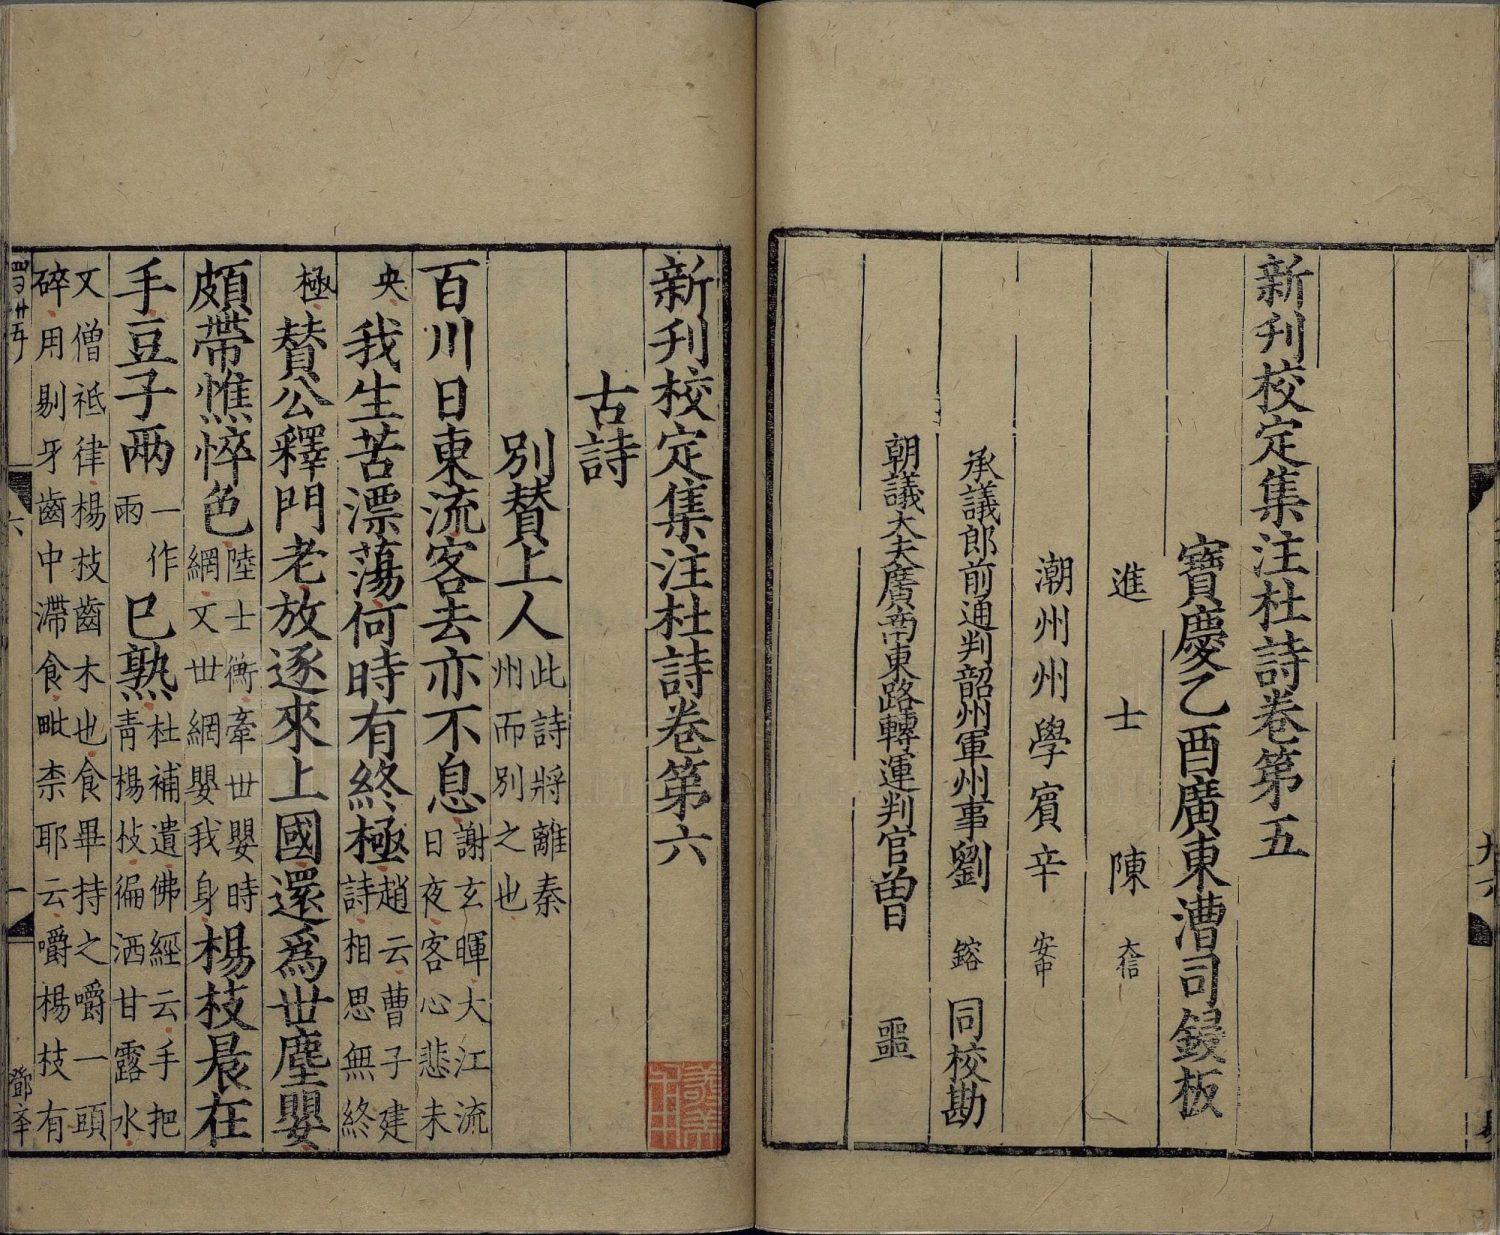 新刋校定集注杜詩卷第五
寶慶乙酉廣東漕司鋟板
進士陳大信
潮州州學賓辛安中
承議郎前通判韶州軍州事劉鎔同校勘
朝議大夫廣南東路轉運判官曾噩
新刋校定集注杜詩卷第六
古詩
別賛上人此詩將離秦州而別之也
百川日東流客去亦不息謝玄暉大江流日夜客心悲未
央我生苦漂蕩何時有終極趙云曹子建詩相思無終
極賛公釋門老放逐來上國還爲丗塵嬰
頗帶憔悴色陸士衡牽丗嬰時網又丗網嬰我身楊枝晨在
手豆子兩一作雨巳熟杜補遺佛經云手把青楊枝徧洒甘露水
又僧祗律楊枝齒木也食畢持之嚼一頭碎用剔牙齒中滯食毗柰耶云嚼楊枝有
六
一